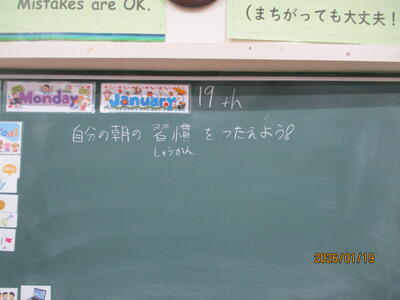 Mistakes are OK.
(まちがっても大丈夫!
Monday
January
19th
自分の朝の習慣をつたえよう。
しゅうかん
2026/01/19